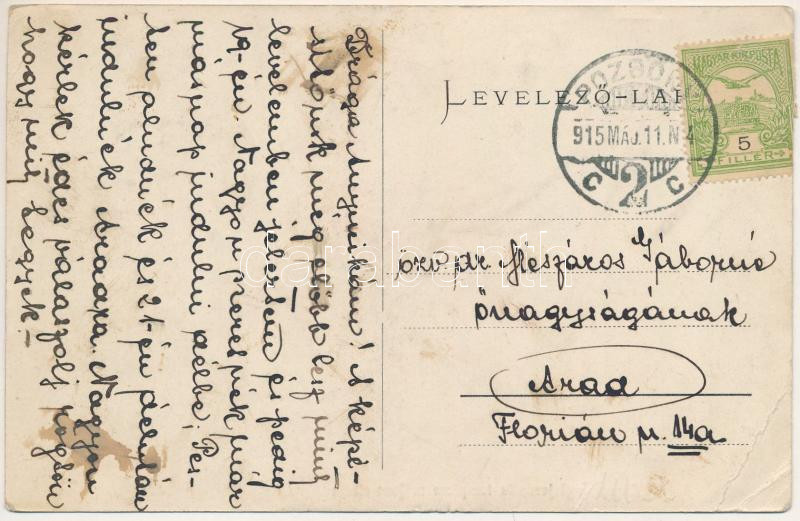 Drága Anyuikám! A képe-
sítőnk még előbb lesz mint
levelemben jeleztem és pedig
19-én. Nagyon szeretnék már
másnap indulni délbe; Pes-
ten aludnék és 21-én délután
indulnék Aradra. Nagyon
kérlek édes válaszolj rögtön
hogy mit tegyek.
LEVELEZŐ-LAP
POZSONY
915 MÁJ.11.N 4
C 2 C
MAGYAR KIR. POSTA
5
FILLÉR
özv dr Mészáros Gáborné
őnagyságának
Arad
Flórián u. 14a
carabanth